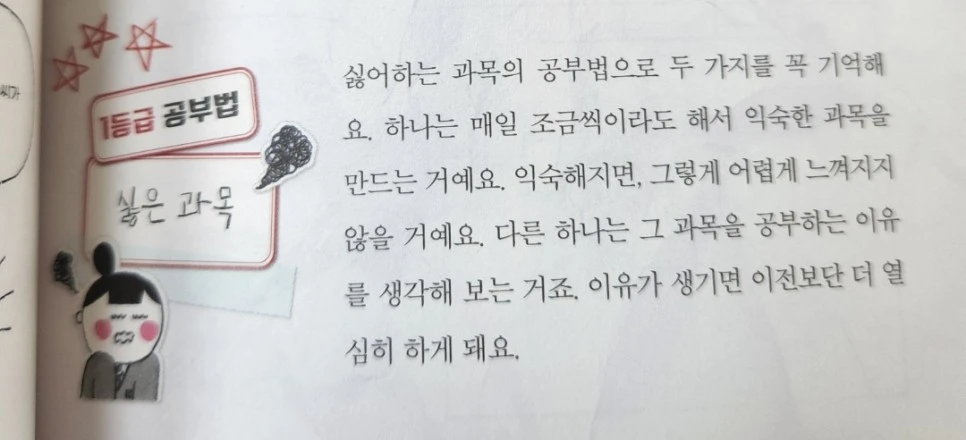 1등급 공부법
싫은 과목
싫어하는 과목의 공부법으로 두 가지를 꼭 기억해
요. 하나는 매일 조금씩이라도 해서 익숙한 과목을
만드는 거예요. 익숙해지면, 그렇게 어렵게 느껴지지
않을 거예요. 다른 하나는 그 과목을 공부하는 이유
를 생각해 보는 거죠. 이유가 생기면 이전보단 더 열
심히 하게 돼요.